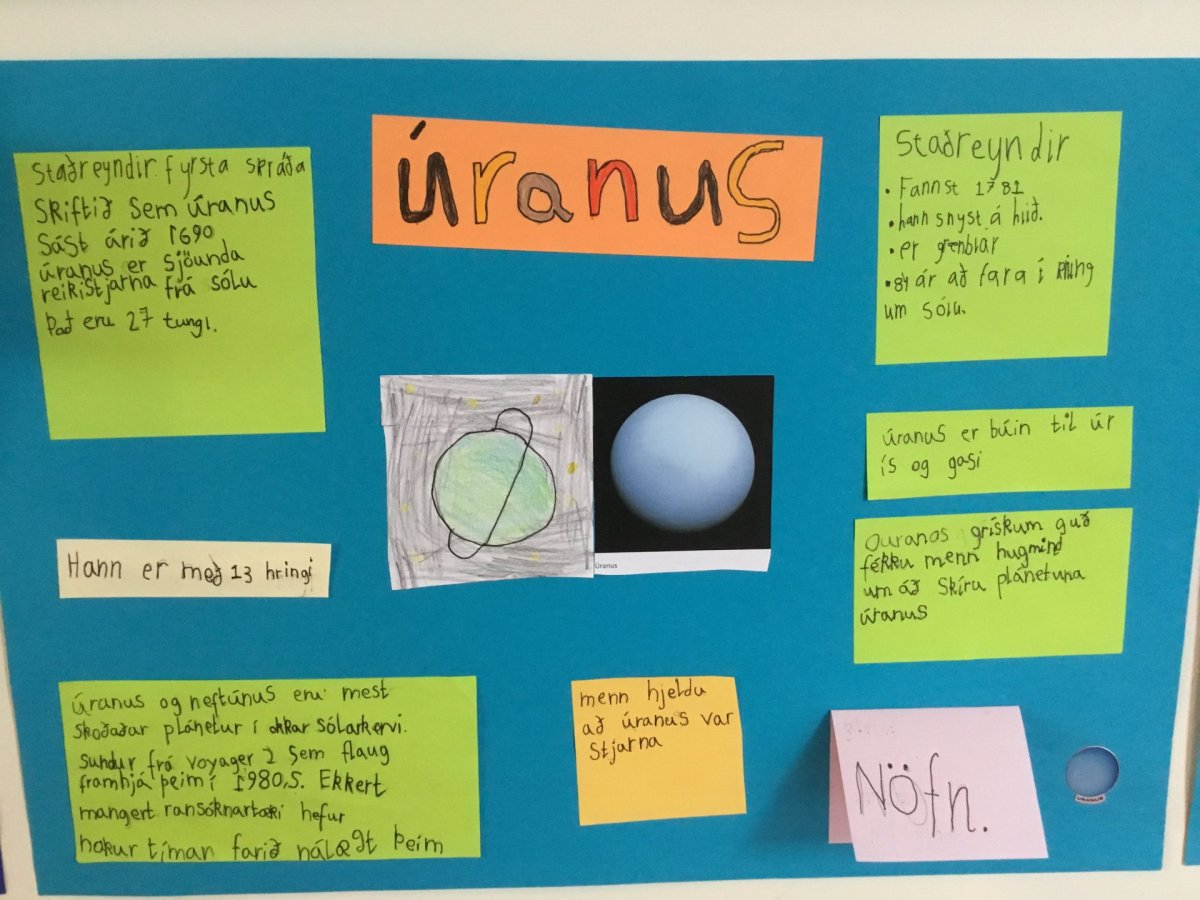 Úranus
Staðreyndir fyrsta spráða
Skiftið sem úranus
Sást árið 1690
úranus er sjöunda
reikistjarna frá sólu
Það eru 27 tungl.
Staðreyndir
• Fannst 1781
• hann snyst á hlið.
• er grenblár
• 84 ár að fara í hring
um sólu.
úranus er búin til úr
ís og gasi
Ouranos grískum guð
fékku menn hugmind
um áð skíra plánetuna
úranus
Úranus
Hann er með 13 hringi
úranus og neftúnus eru mest
skoðaðar plánetur í okkar sólarkervi.
sundur frá voyager 2 sem flaug
framhjá þeim í 1980.s. Ekkert
mangert ransóknartæki hefur
nokur tíman farið nálægt þeim
menn hjeldu
að úranus var
stjarna
Nöfn.
ÚRANUS